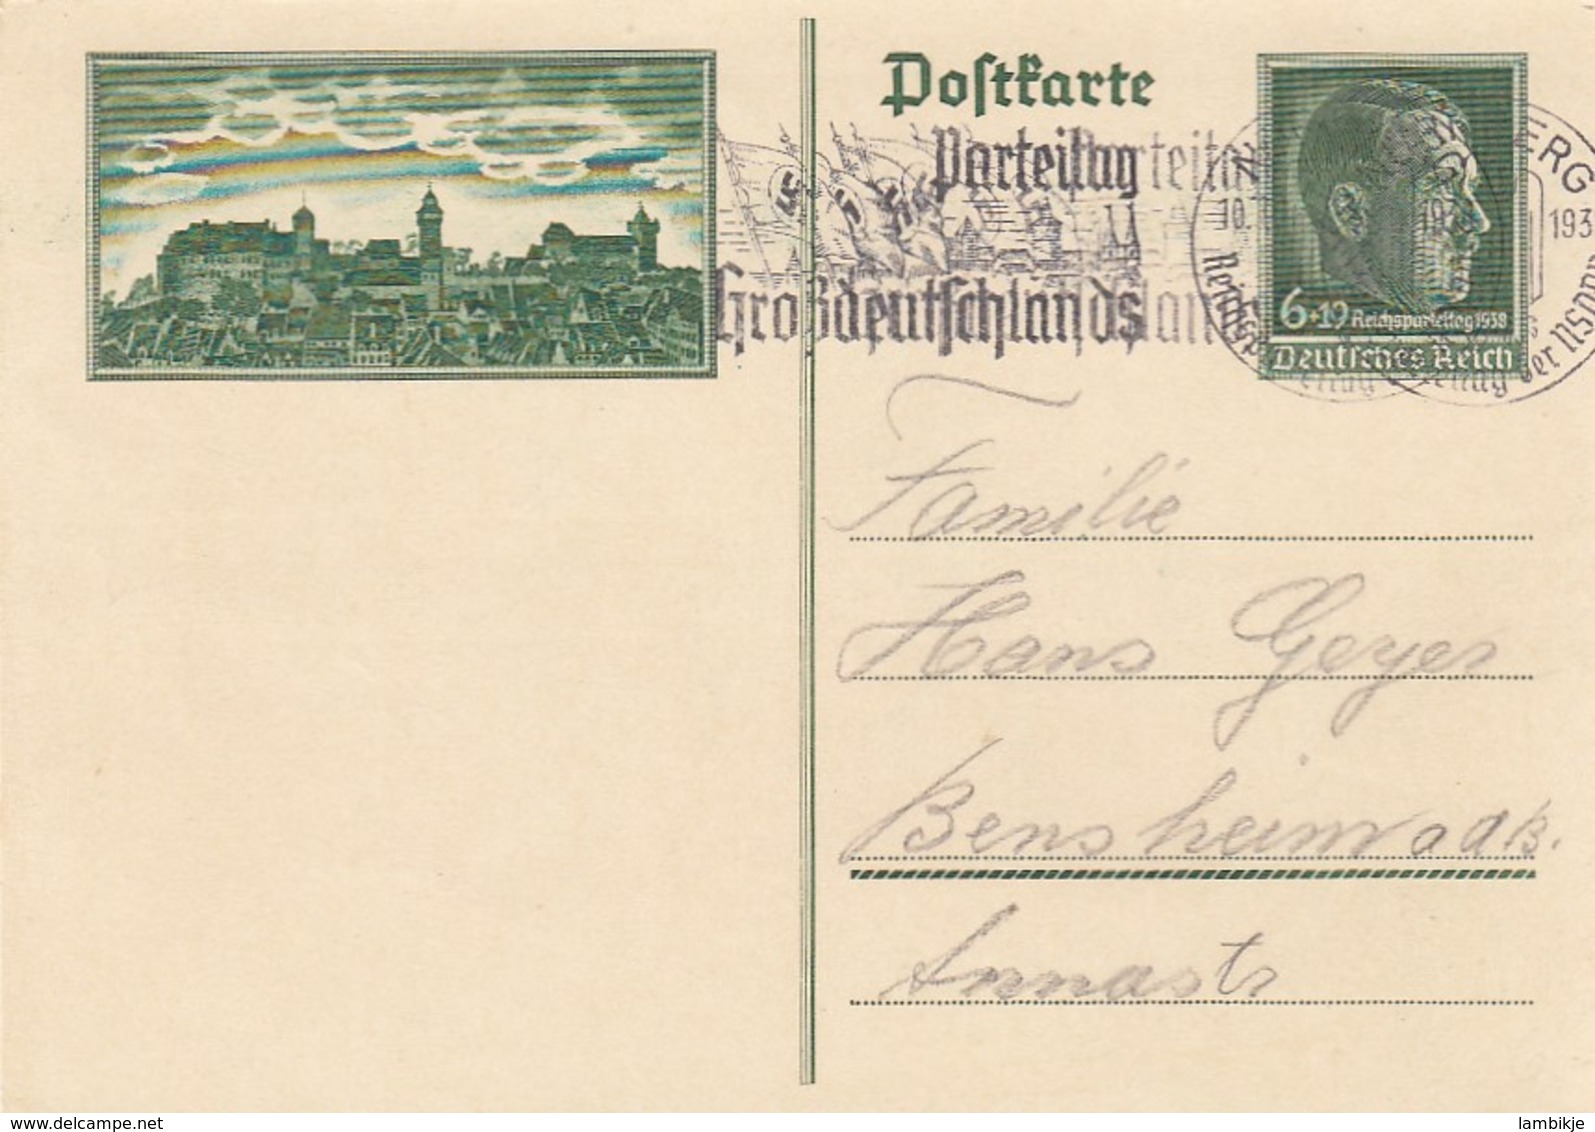 Postkarte
Parteitag
Großdeutschlands
10.
193
Reichsparteitag der NSDAP
6+19 Reichsparteitag 1938
Deutsches Reich
Familie
Hans Geyer
Bensheim a d B.
Annastr
delcampe.net
lambikje